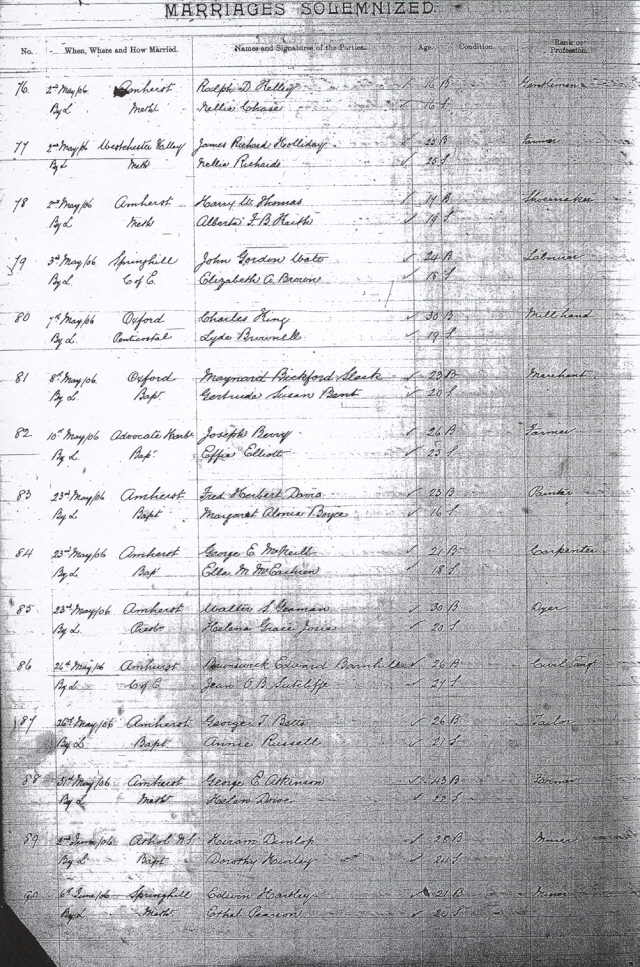 MARRIAGES SOLEMNIZED.
No. When, Where and How Married. Names and Signatures of the Parties. Age. Condition. Rank or Profession.
76 2nd May/06 Amherst Ralph D. Kelley 16 B Gentleman
By L Meth Nellie Chase ✓ 16 S
77 2nd May/06 Westchester Valley James Richard Holliday ✓ 25 B Farmer
By L Meth Nellie Richards ✓ 25 S
78 2nd May/06 Amherst Harry W. Thomas ✓ 19 B Shoemaker
By L Meth Alberta F. B. Keith ✓ 19 S
79 3rd May/06 Springhill John Gordon ✓ 24 B Labourer
By L C of E. Elizabeth A. Brown ✓ 18 S
80 7th May/06 Oxford Charles King ✓ 30 B Mill hand
By L Pentecostal Lyda Brownell ✓ 19 S
81 8th May/06 Oxford Maynard Bickford Slack ✓ 23 B Merchant
By L Bapt Gertrude Susan Bent ✓ 20 S
82 10th May/06 Advocate Harb. Joseph Berry ✓ 26 B Farmer
By L Bap. Effie Elliott ✓ 25 S
83 23rd May/06 Amherst Fred Herbert Davis ✓ 23 B Painter
By L Bapt Margaret Boyce ✓ 16 S
84 23rd May/06 Amherst George E. McNeill ✓ 21 B Carpenter
By L Bap Ella M. McEachren ✓ 18 S
85 23rd May/06 Amherst Walter S. Yeoman ✓ 30 B Dyer
By L Presb. Helena Grace ✓ 20 S
86 26th May/06 Amherst Edward Barnhill ✓ 26 B Civil Eng
By L C of E Jean O. B. Sutcliffe ✓ 24 S
87 26th May/06 Amherst George T. Betts ✓ 26 B Tailor
By L Bapt Annie Russell ✓ 21 S
88 31st May/06 Amherst George E. Atkinson ✓ 43 B Farmer
By L Meth Helen ✓ 22 S
89 2nd June/06 Athol N.S. Hiram Dunlop ✓ 28 B Miner
By L Bapt Dorothy Hurley ✓ 24 S
90 6th June/06 Springhill Edwin Hartley 21 B Miner
By L Meth. Ethel Pearson ✓ 20 S